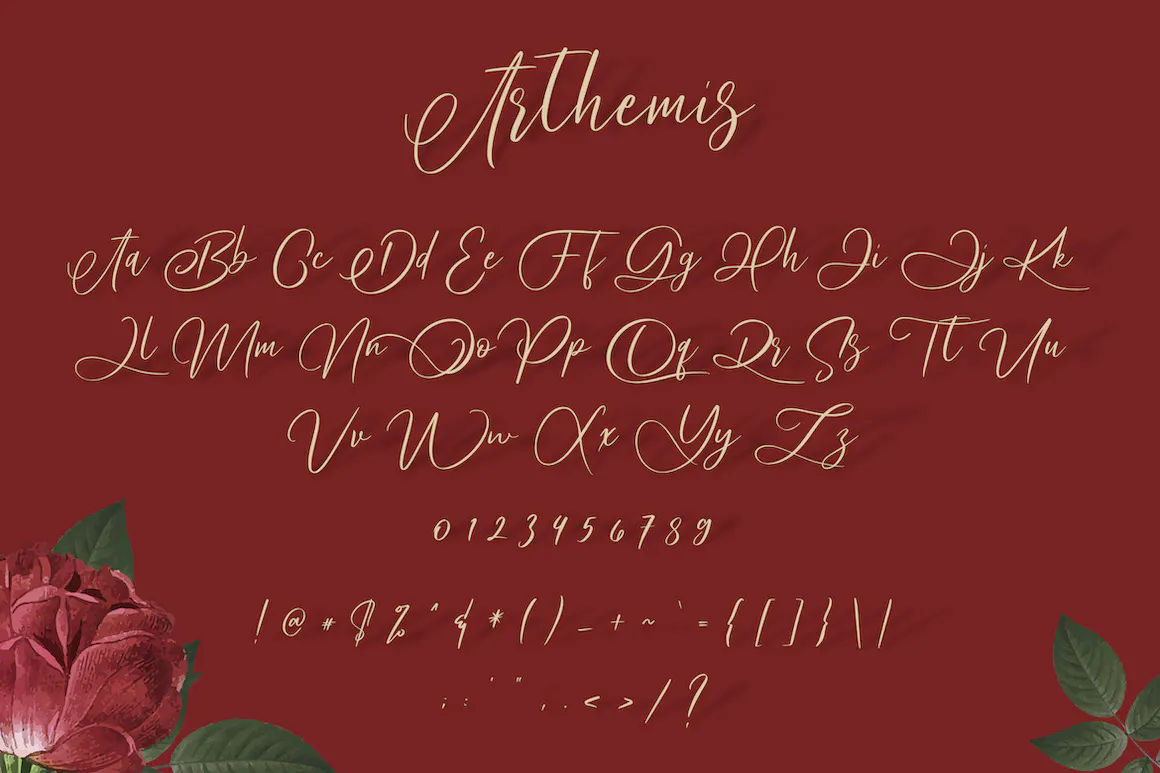 Arthemis
Aa Bb Cc Dd Ee Ff Gg Hh Ii Jj Kk
Ll Mm Nn Oo Pp Qq Rr Ss Tt Uu
Vv Ww Xx Yy Zz
0 1 2 3 4 5 6 7 8 9
! @ # $ % ^ & * ( ) _ + ~ ` = { [ ] } \ |
; : ' " , . < > / ?